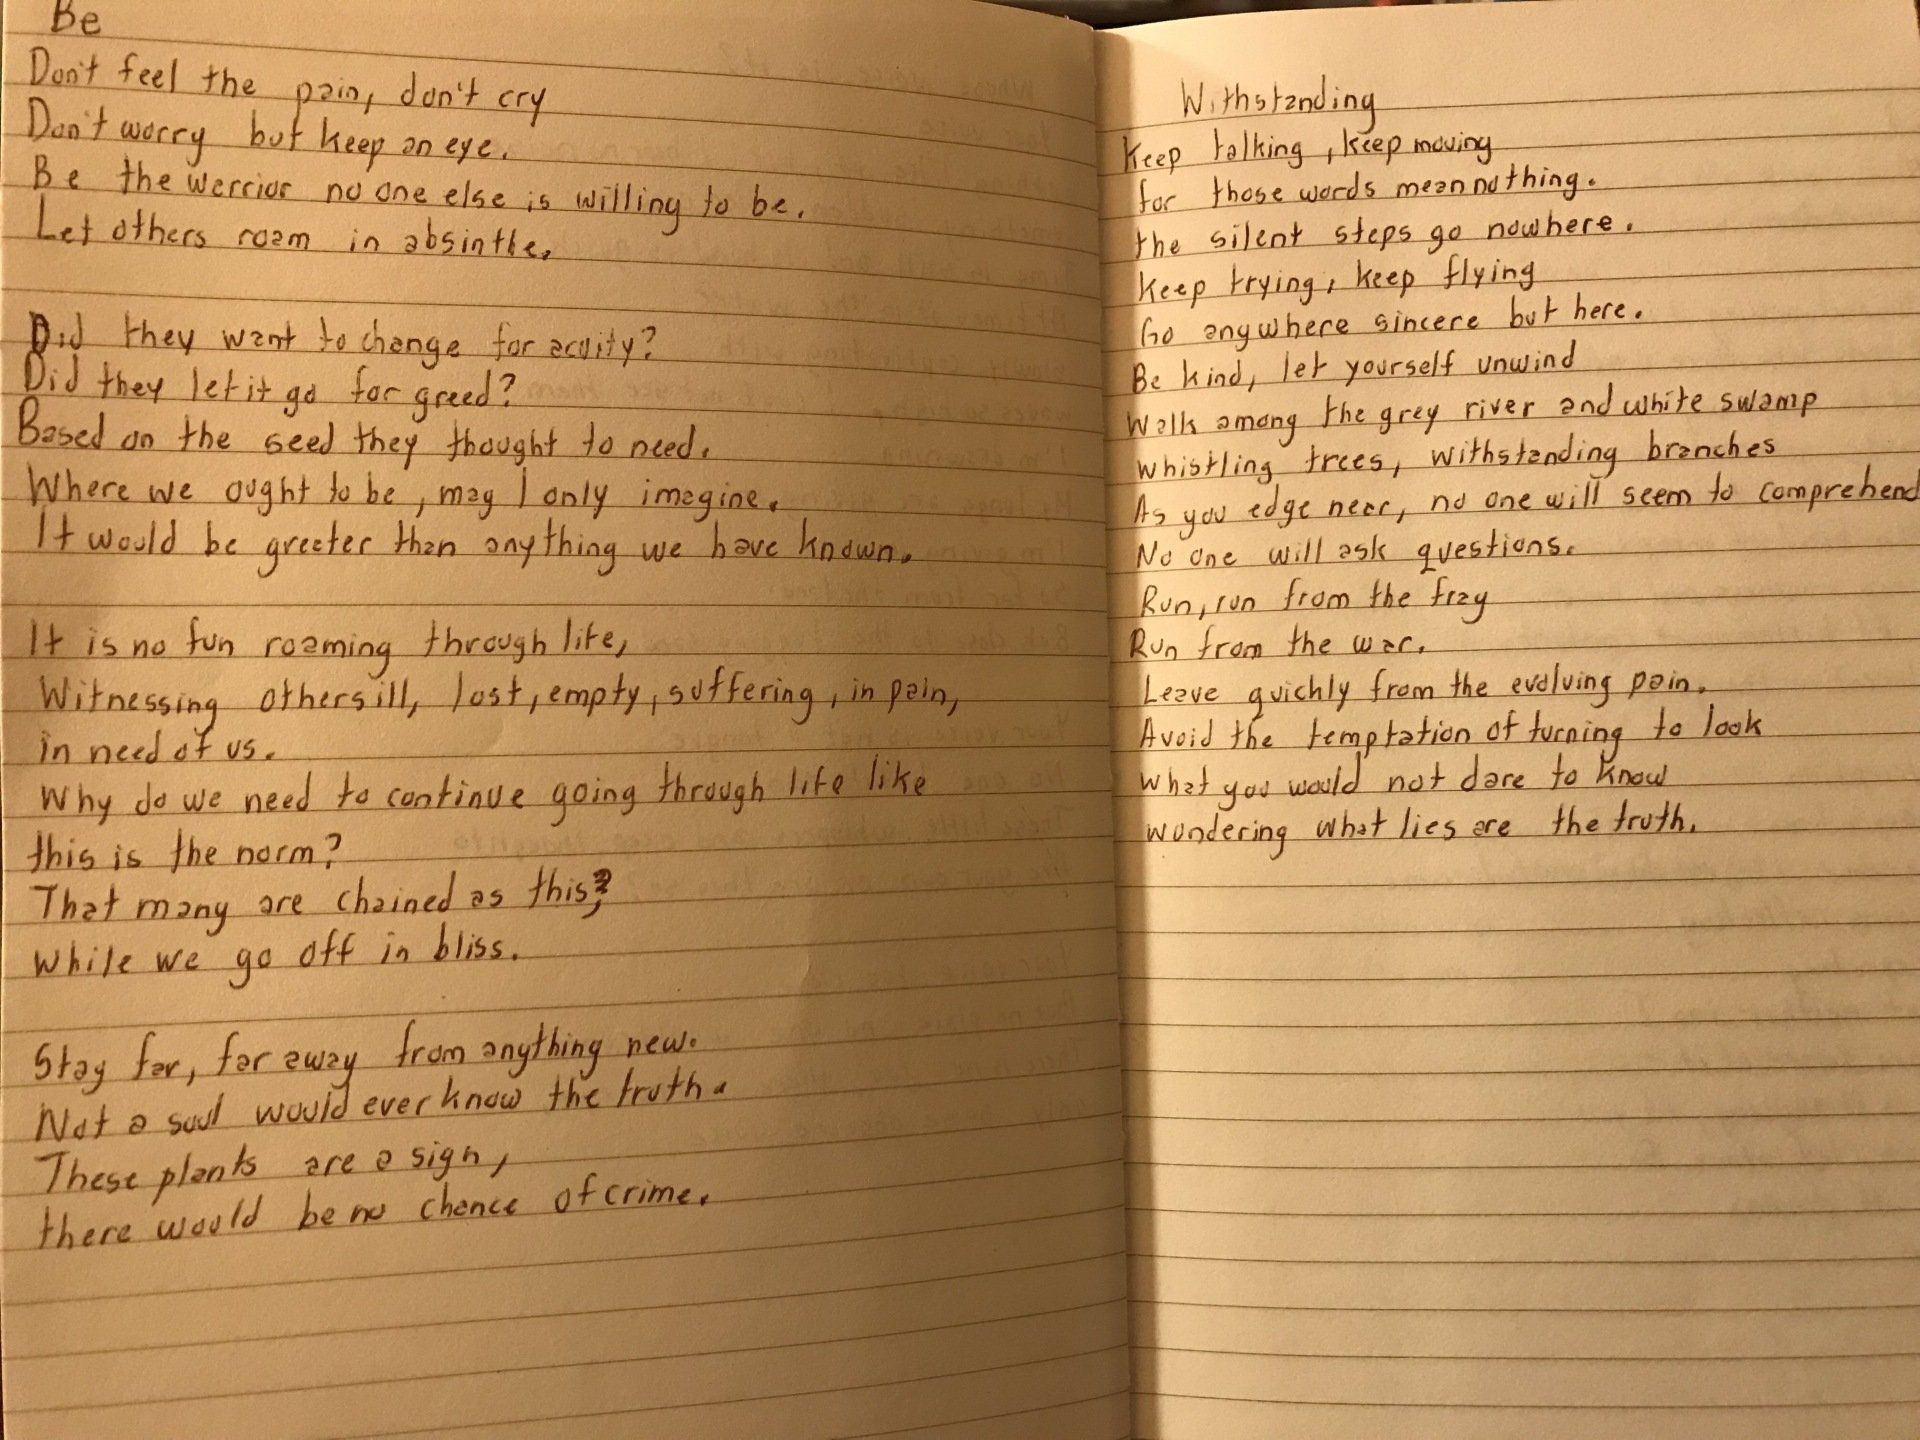 Be
Don't feel the pain, don't cry
Don't worry but keep an eye.
Be the warrior no one else is willing to be.
Let others roam in absinthe.
Did they want to change for acuity?
Did they let it go for greed?
Based on the seed they thought to need.
Where we ought to be, may I only imagine.
It would be greater than anything we have known.
It is no fun roaming through life,
Witnessing others ill, lost, empty, suffering, in pain,
in need of us.
Why do we need to continue going through life like
this is the norm?
That many are chained as this?
While we go off in bliss.
Stay far, far away from anything new.
Not a soul would ever know the truth.
These plants are a sign,
there would be no chance of crime.
Withstanding
Keep talking, keep moving
for those words mean nothing.
the silent steps go nowhere.
Keep trying, keep flying
Go anywhere sincere but here.
Be kind, let yourself unwind
Walk among the grey river and white swamp
whistling trees, withstanding branches
As you edge near, no one will seem to comprehend
No one will ask questions.
Run, run from the fray
Run from the war.
Leave quickly from the evolving pain.
Avoid the temptation of turning to look
what you would not dare to know
wondering what lies are the truth.